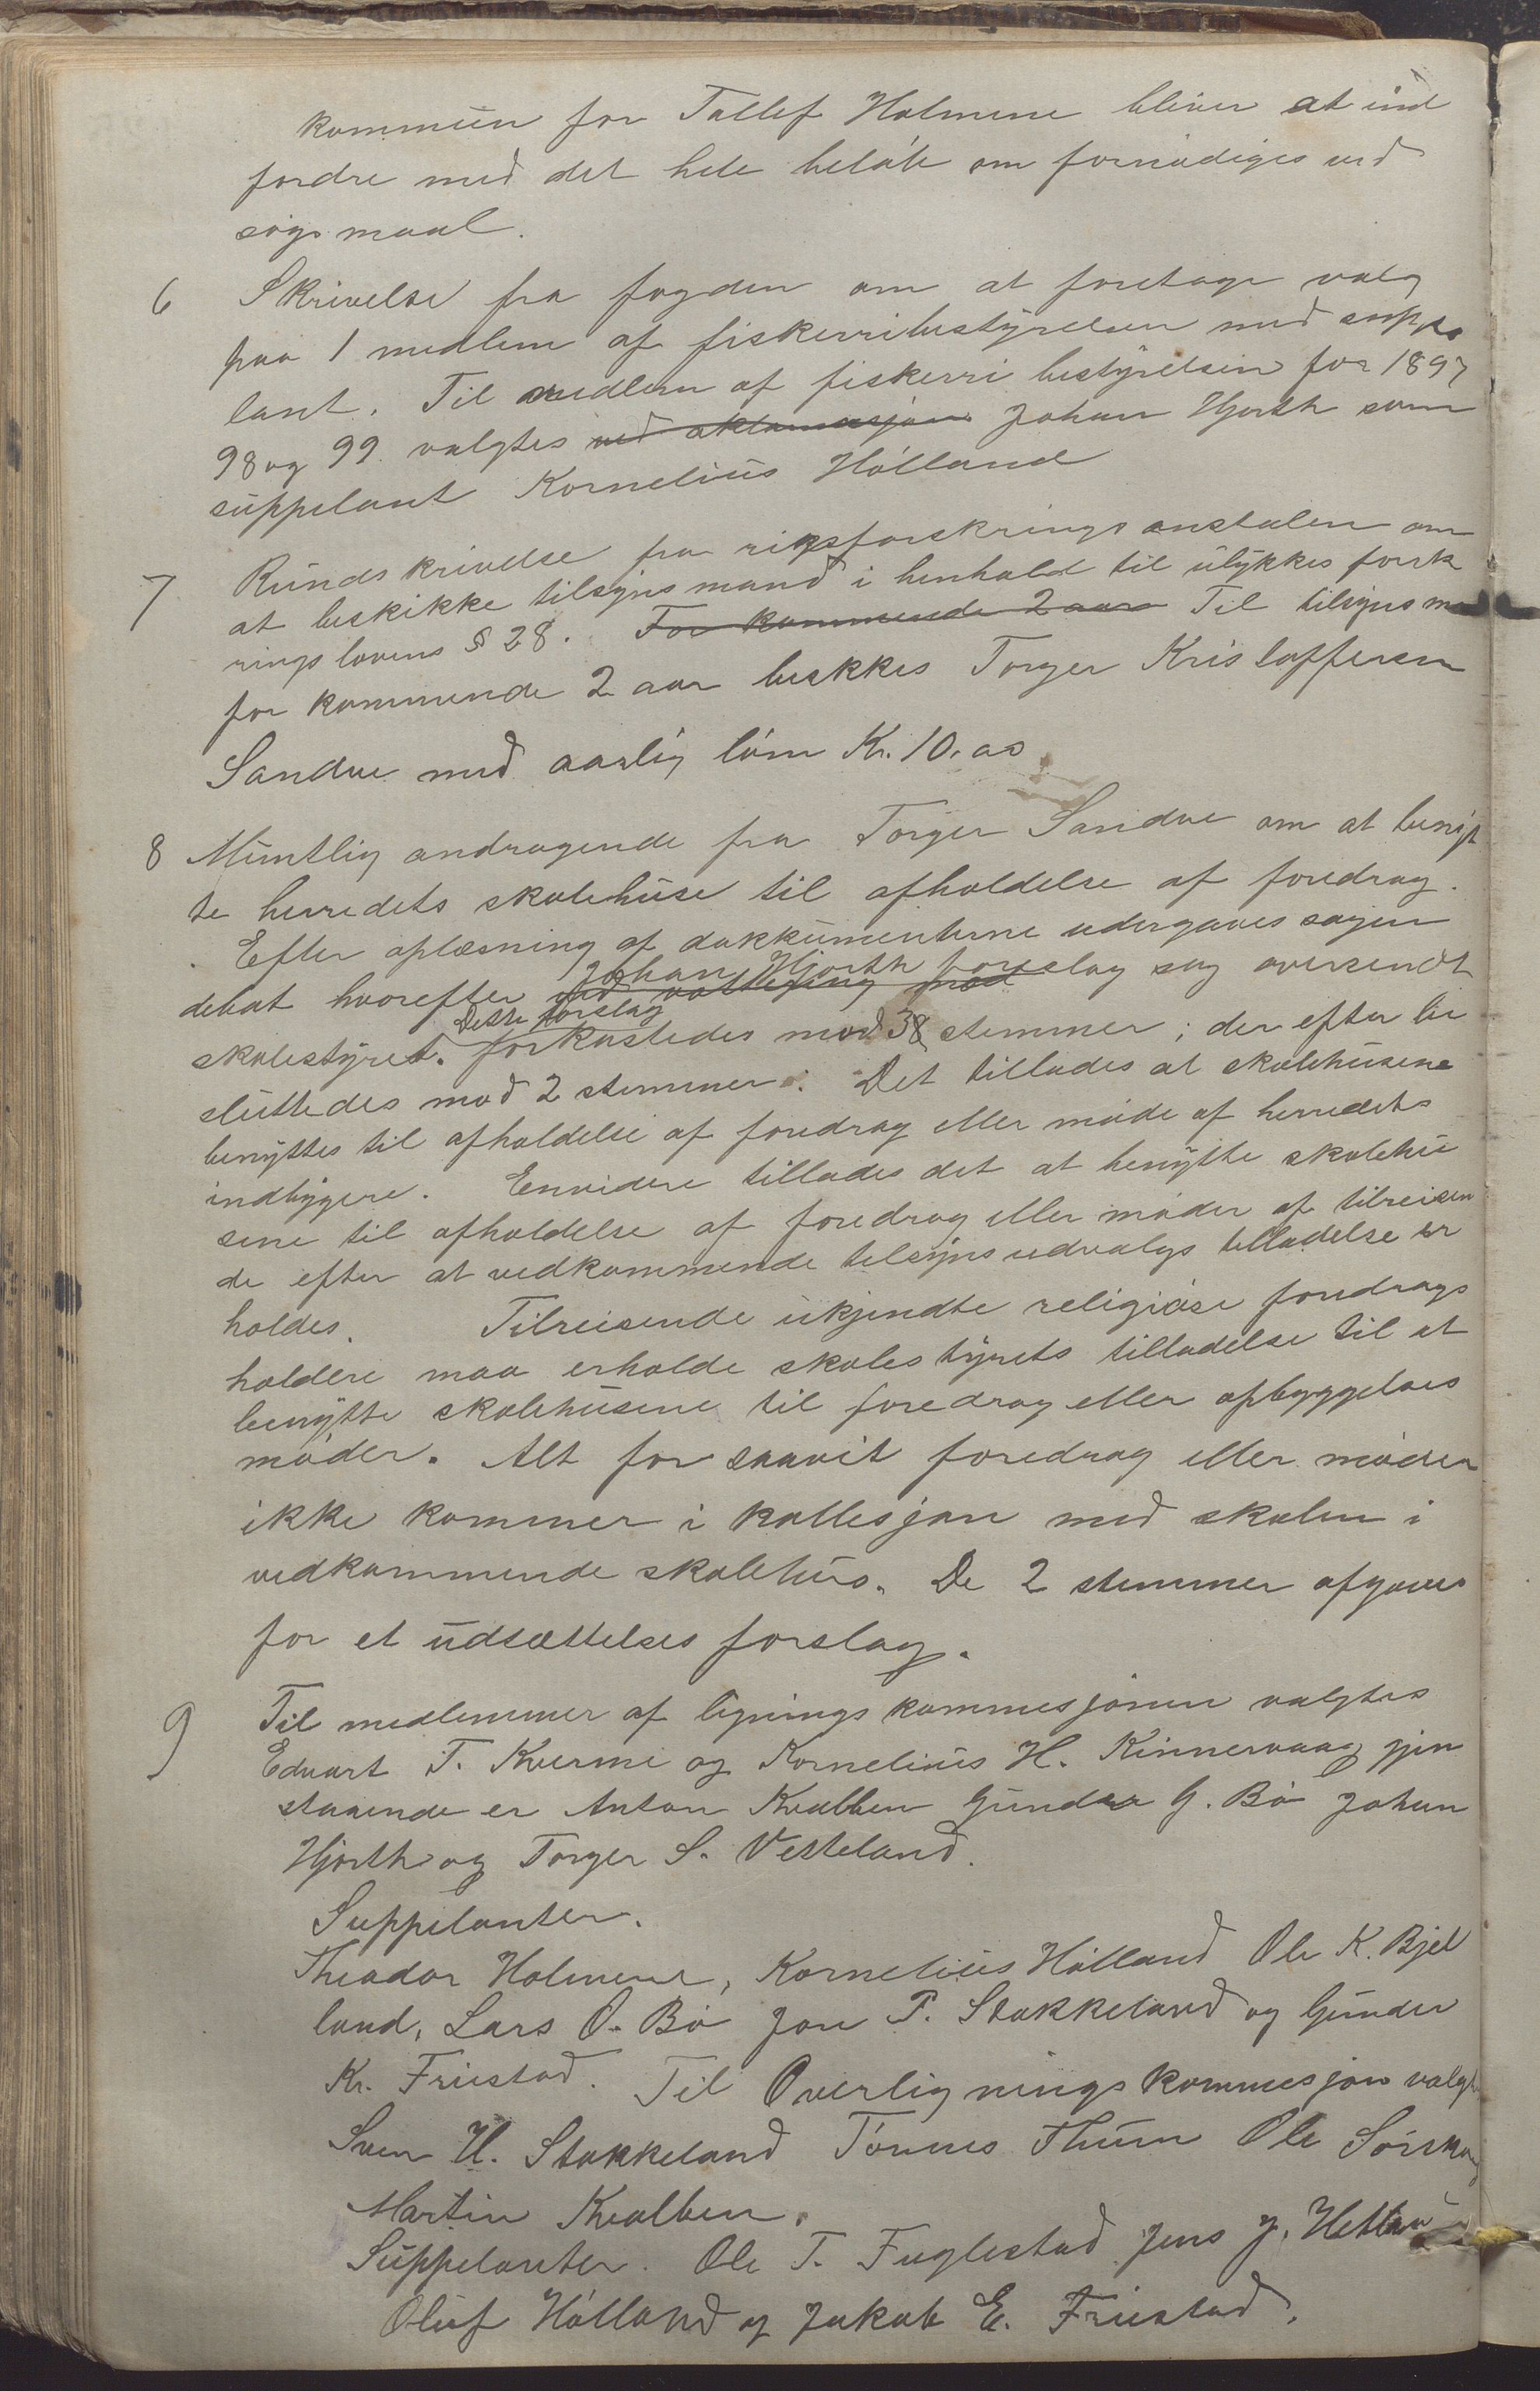 kommun for Tallef Holmene bliver at ind
fordre med det hele beløb om fornødiges ved
søgsmaal.
6 Skrivelse fra fogden om at foretage valg
paa 1 medlem af fiskerribestyrelsen med suppe
lant. Til medlem af fiskerri bestyrelsen for 1897
98 og 99. valgtes ved aklamasjon Johan Hjorth som
suppelant Kornelius Hålland
7 Rundskrivelse fra rigsforskrings anstalen om
at beskikke tilsynsmand i henhold til ulykkes forsk
rings lovens § 28. For kommende 2 aar Til tilsynsma
for kommende 2 aar beskkes Torger Kristoffersen
Sandve med aarlig lønn Kr. 10.00
8 Muntlig andragende fra Torger Sandve om at benyt
te herredets skolehuse til afholdelse af foredrag.
Efter oplæsning af dokkumenterne udergaves sagen
debat hvorefter ved vottering mod Johan Hjorth foreslog sag oversendt
skolestyret. Dette forslag forkastedes mod 3 stemmer; der efter be
sluttedes mod 2 stemmer: Det tillades at skolehusene
benyttes til afholdelse af foredrag eller møde af herredets
indbygere. Envidere tillades det at benytte skolehu
sene til afholdelse af foredrag eller møder af tilreisen
de efter at vedkommende telsyns udvalgs telladelse er
holdes. Tilreisende ukjendte religiøse foredrags
holdere maa erholde skolestyrets tilladelse til at
benytte skolehusene til foredrag eller opbyggelses
møder. Alt for saavit foredrag eller møder
ikke kommer i kollesjon med skolen i
vedkommende skolehus. De 2 stemmer afgaves
for et udsættelses forslag.
9 Til medlemmer af lignings kommesjonen valgtes
Edvart T. Kverme og Kornelius H. Kinnervaag gjen
staaende er Anton Kvalben Gunder G. Bø Johan
Hjorth og Torger S. Vesteland.
Suppelanter.
Theodor Holmene, Kornelius Hålland Ole K. Bjel
land, Lars O. Bø Jon P. Stokkeland og Gunder
Kr. Friestad. Til Overlignings kommesjon valgte
Sven H. Stokkeland Tønnes Thuen Ole Sørskog
Martin Kvalben.
Suppelanter. Ole T. Fuglestad Jens J. Hettern
Oluf Hålland og Jakob E. Friestad.